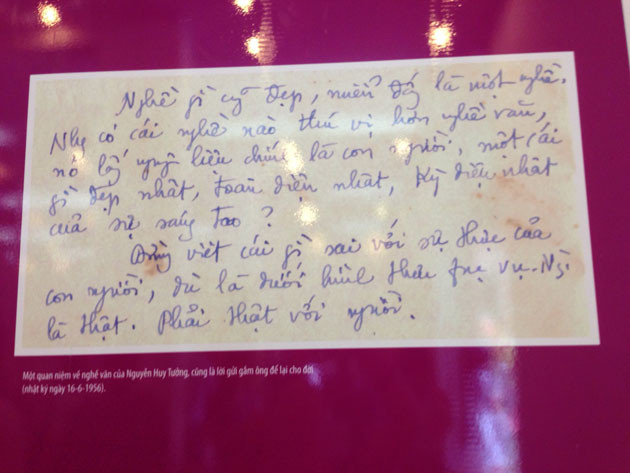 Nghề gì cũng đẹp, miễn đấy là một nghề.
Nhưng có cái nghề nào thú vị hơn nghề văn,
nó lấy nguyên liệu chính là con người, một cái
gì đẹp nhất, toàn diện nhất, kỳ diệu nhất
của sự sáng tạo ?
Đừng viết cái gì sai với sự thực của
con người, dù là dưới hình thức phục vụ.
là thật. Phải thật với người.
Một quan niệm về nghề văn của Nguyễn Huy Tưởng, cũng là lời gửi gắm ông để lại cho đời
(nhật ký ngày 16-6-1956).